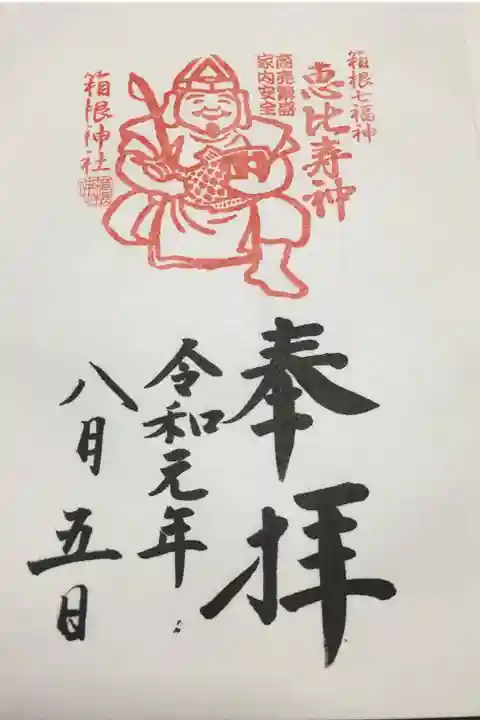 箱根七福神
恵比寿神
商売繁盛
家内安全
箱根神社
奉拝
令和元年
八月五日